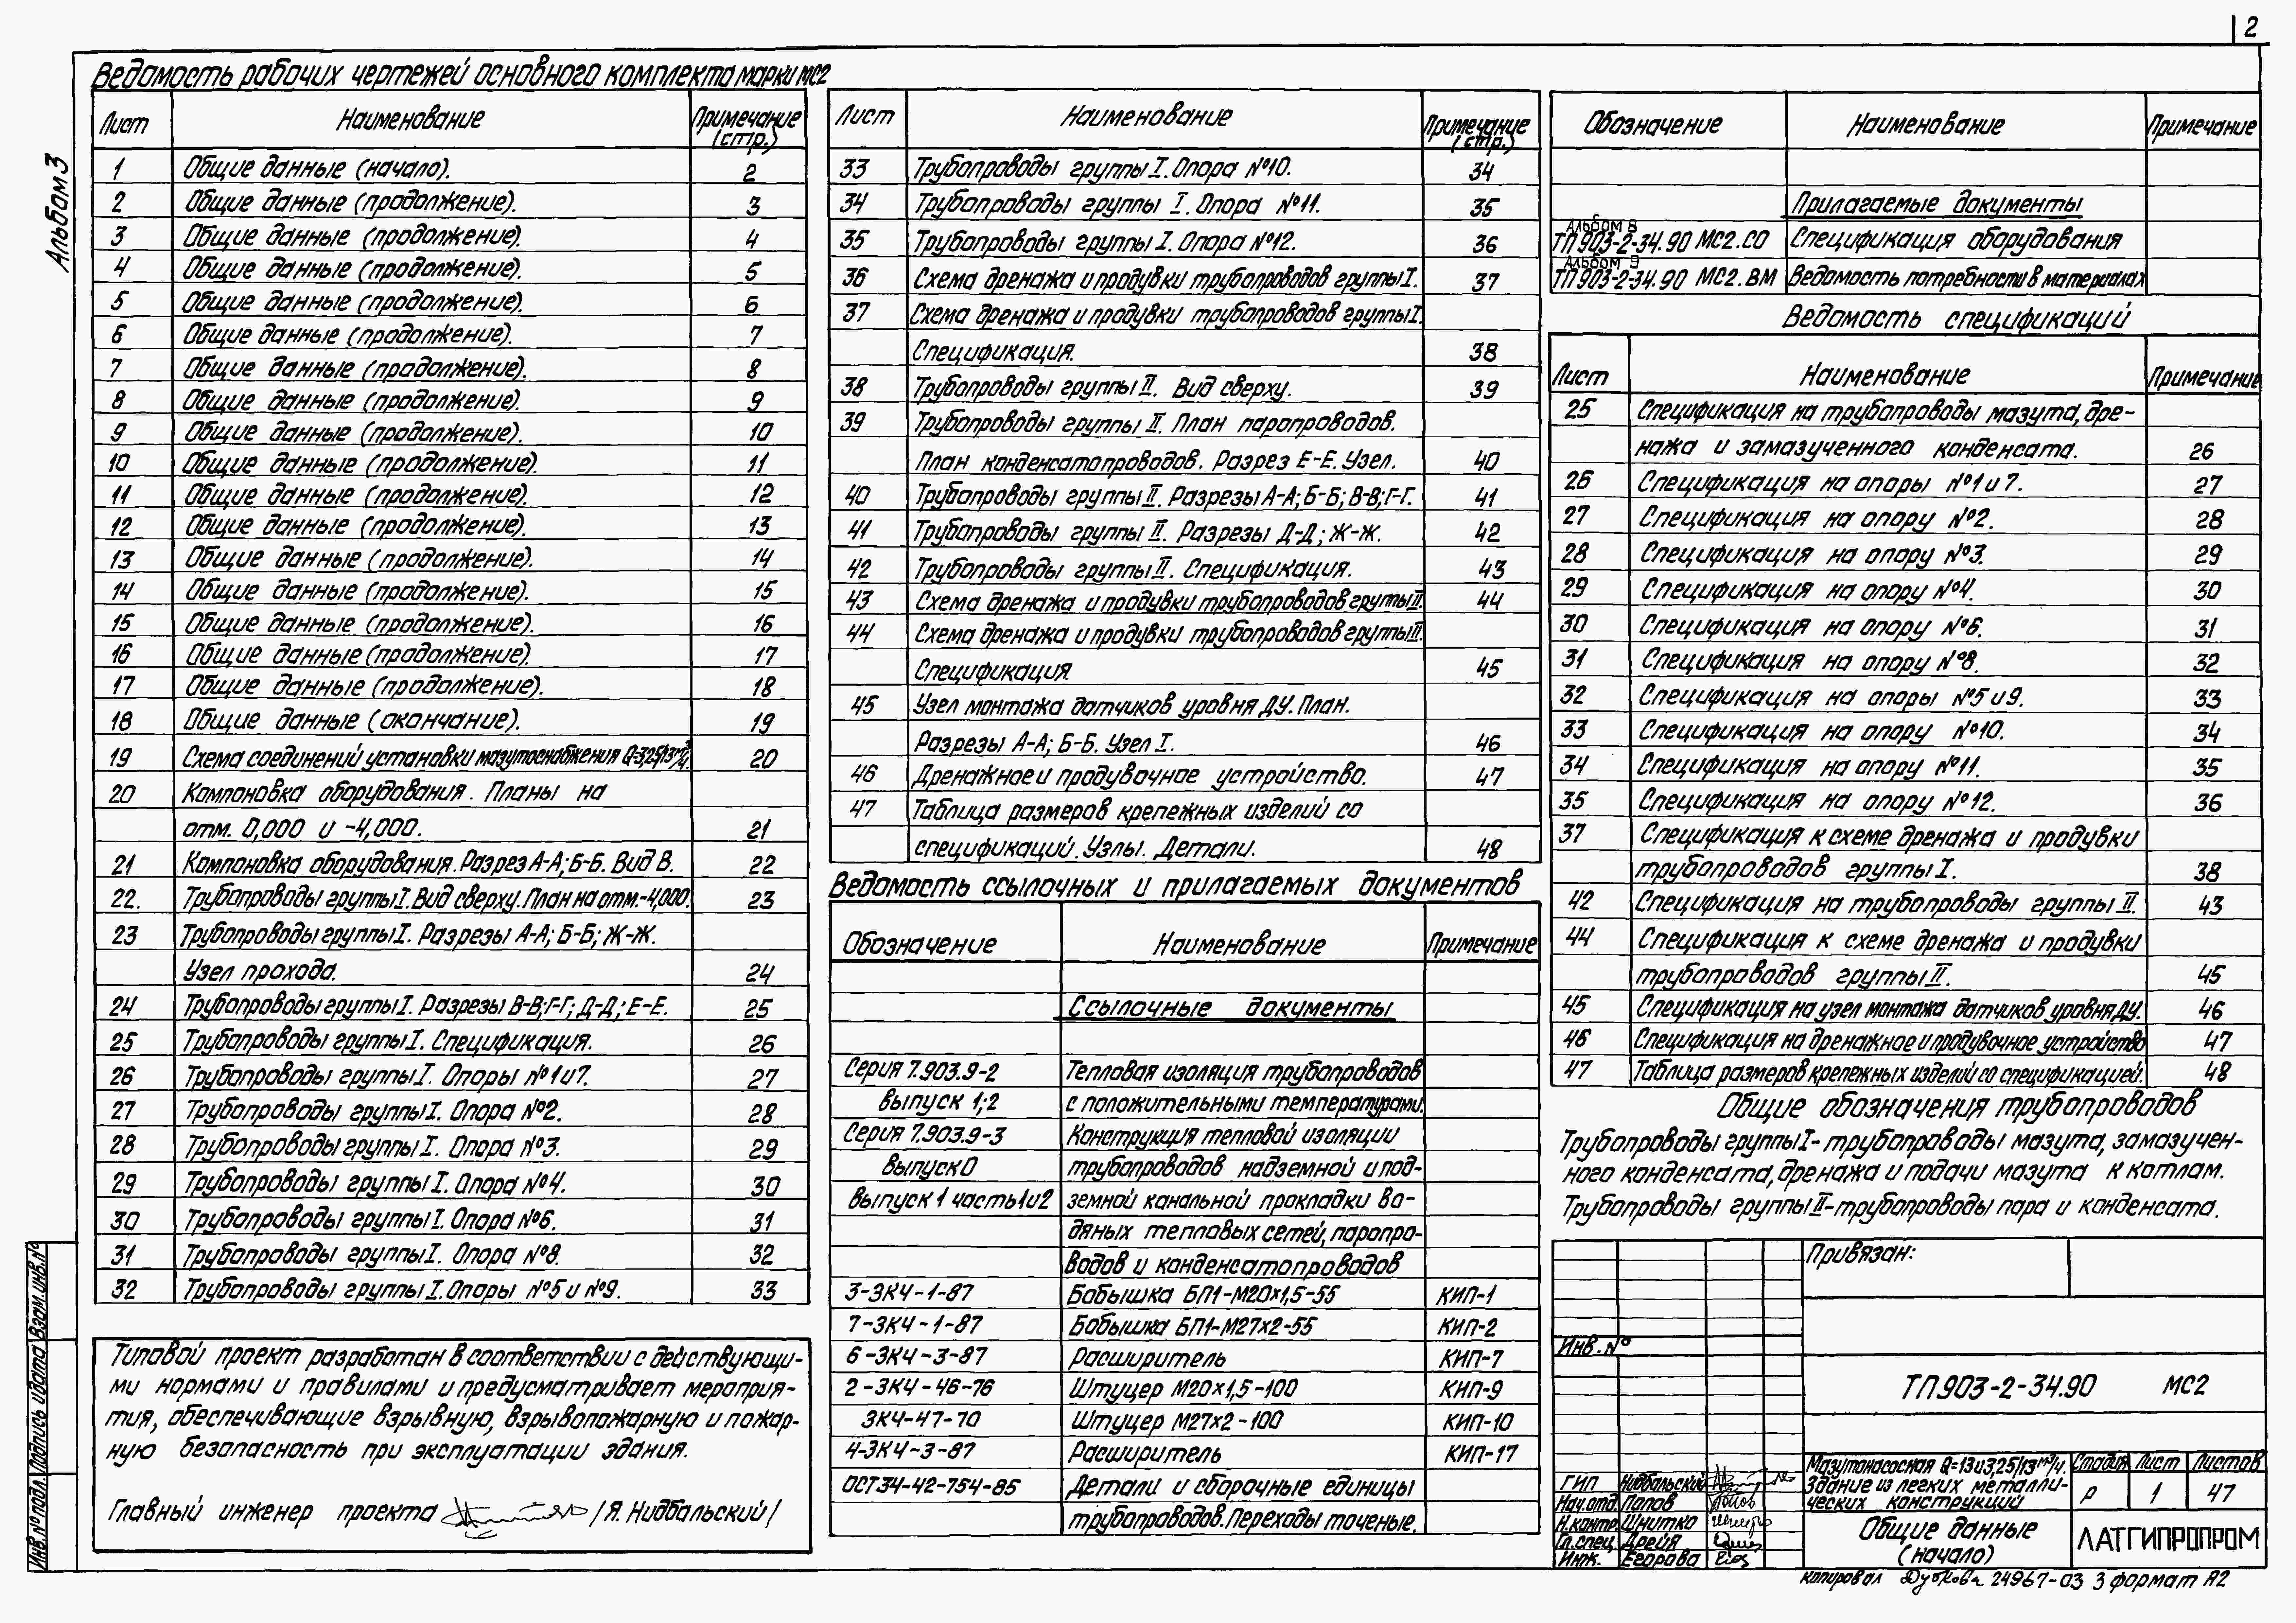 2
Альбом 3
Ведомость рабочих чертежей основного комплекта марки МС2
Лист Наименование Примечание (стр.)
1 Общие данные (начало). 2
2 Общие данные (продолжение). 3
3 Общие данные (продолжение). 4
4 Общие данные (продолжение). 5
5 Общие данные (продолжение). 6
6 Общие данные (продолжение). 7
7 Общие данные (продолжение). 8
8 Общие данные (продолжение). 9
9 Общие данные (продолжение). 10
10 Общие данные (продолжение). 11
11 Общие данные (продолжение). 12
12 Общие данные (продолжение). 13
13 Общие данные (продолжение). 14
14 Общие данные (продолжение). 15
15 Общие данные (продолжение). 16
16 Общие данные (продолжение). 17
17 Общие данные (продолжение). 18
18 Общие данные (окончание). 19
19 Схема соединений установки мазутоснабжения Q=3,25/13 м³/ч. 20
20 Компоновка оборудования. Планы на
отм. 0,000 и -4,000. 21
21 Компоновка оборудования. Разрез А-А; Б-Б. Вид В. 22
22. Трубопроводы группы I. Вид сверху. План на отм.-4,000. 23
23 Трубопроводы группы I. Разрезы А-А; Б-Б; Ж-Ж.
Узел прохода. 24
24 Трубопроводы группы I. Разрезы В-В; Г-Г; Д-Д; Е-Е. 25
25 Трубопроводы группы I. Спецификация. 26
26 Трубопроводы группы I. Опоры №1 и 7. 27
27 Трубопроводы группы I. Опора №2. 28
28 Трубопроводы группы I. Опора №3. 29
29 Трубопроводы группы I. Опора №4. 30
30 Трубопроводы группы I. Опора №6. 31
31 Трубопроводы группы I. Опора №8. 32
32 Трубопроводы группы I. Опоры №5 и №9. 33
Типовой проект разработан в соответствии с действующи-
ми нормами и правилами и предусматривает мероприя-
тия, обеспечивающие взрывную, взрывопожарную и пожар-
ную безопасность при эксплуатации здания.
Главный инженер проекта /Я. Нидбальский/
Лист Наименование Примечание (стр.)
33 Трубопроводы группы I. Опора №10. 34
34 Трубопроводы группы I. Опора №11. 35
35 Трубопроводы группы I. Опора №12. 36
36 Схема дренажа и продувки трубопроводов группы I. 37
37 Схема дренажа и продувки трубопроводов группы I.
Спецификация. 38
38 Трубопроводы группы II. Вид сверху. 39
39 Трубопроводы группы II. План паропроводов.
План конденсатопроводов. Разрез Е-Е. Узел. 40
40 Трубопроводы группы II. Разрезы А-А; Б-Б; В-В; Г-Г. 41
41 Трубопроводы группы II. Разрезы Д-Д; Ж-Ж. 42
42 Трубопроводы группы II. Спецификация. 43
43 Схема дренажа и продувки трубопроводов группы II. 44
44 Схема дренажа и продувки трубопроводов группы II.
Спецификация. 45
45 Узел монтажа датчиков уровня ДУ. План.
Разрезы А-А; Б-Б. Узел I. 46
46 Дренажное и продувочное устройство. 47
47 Таблица размеров крепежных изделий со
спецификаций. Узлы. Детали. 48
Ведомость ссылочных и прилагаемых документов
Обозначение Наименование Примечание
Ссылочные документы
Серия 7.903.9-2 Тепловая изоляция трубопроводов
выпуск 1;2 с положительными температурами.
Серия 7.903.9-3 Конструкция тепловой изоляции
выпуск 0 трубопроводов надземной и под-
выпуск 1 часть 1 и 2 земной канальной прокладки во-
дяных тепловых сетей, паропро-
водов и конденсатопроводов
3-ЗК4-1-87 Бобышка БП1-М20×1,5-55 КИП-1
7-ЗК4-1-87 Бобышка БП1-М27×2-55 КИП-2
6-ЗК4-3-87 Расширитель КИП-7
2-ЗК4-46-76 Штуцер М20×1,5-100 КИП-9
ЗК4-47-70 Штуцер М27×2-100 КИП-10
4-ЗК4-3-87 Расширитель КИП-17
ОСТ 34-42-754-85 Детали и сборочные единицы
трубопроводов. Переходы точеные.
Обозначение Наименование Примечание
Прилагаемые документы
Альбом 8
ТП 903-2-34.90 МС2.СО Спецификация оборудования
Альбом 9
ТП 903-2-34.90 МС2.ВМ Ведомость потребности в материалах
Ведомость спецификаций
Лист Наименование Примечание
25 Спецификация на трубопроводы мазута, дре-
нажа и замазученного конденсата. 26
26 Спецификация на опоры №1 и 7. 27
27 Спецификация на опору №2. 28
28 Спецификация на опору №3. 29
29 Спецификация на опору №4. 30
30 Спецификация на опору №6. 31
31 Спецификация на опору №8. 32
32 Спецификация на опоры №5 и 9. 33
33 Спецификация на опору №10. 34
34 Спецификация на опору №11. 35
35 Спецификация на опору №12. 36
37 Спецификация к схеме дренажа и продувки
трубопроводов группы I. 38
42 Спецификация на трубопроводы группы II. 43
44 Спецификация к схеме дренажа и продувки
трубопроводов группы II. 45
45 Спецификация на узел монтажа датчиков уровня ДУ. 46
46 Спецификация на дренажное и продувочное устройство 47
47 Таблица размеров крепежных изделий со спецификацией. 48
Общие обозначения трубопроводов
Трубопроводы группы I- трубопроводы мазута, замазучен-
ного конденсата, дренажа и подачи мазута к котлам.
Трубопроводы группы II-трубопроводы пара и конденсата.
Привязан:
Инв. №
ТП 903-2-34.90 МС2
Мазутонасосная Q=13 и 3,25/13 м³/ч.
Здание из легких металли-
ческих конструкций
Стадия Лист Листов
Р 1 47
ГИП Нидбальский
Нач.отд. Попов
Н.контр. Шнитко
Гл.спец. Дрейя
Инж. Егорова
Общие данные
(начало)
ЛАТГИПРОПРОМ
Копировал Дубкова 24967-03 3 формат А2
Инв.№ подл. Подпись и дата Взам.инв.№